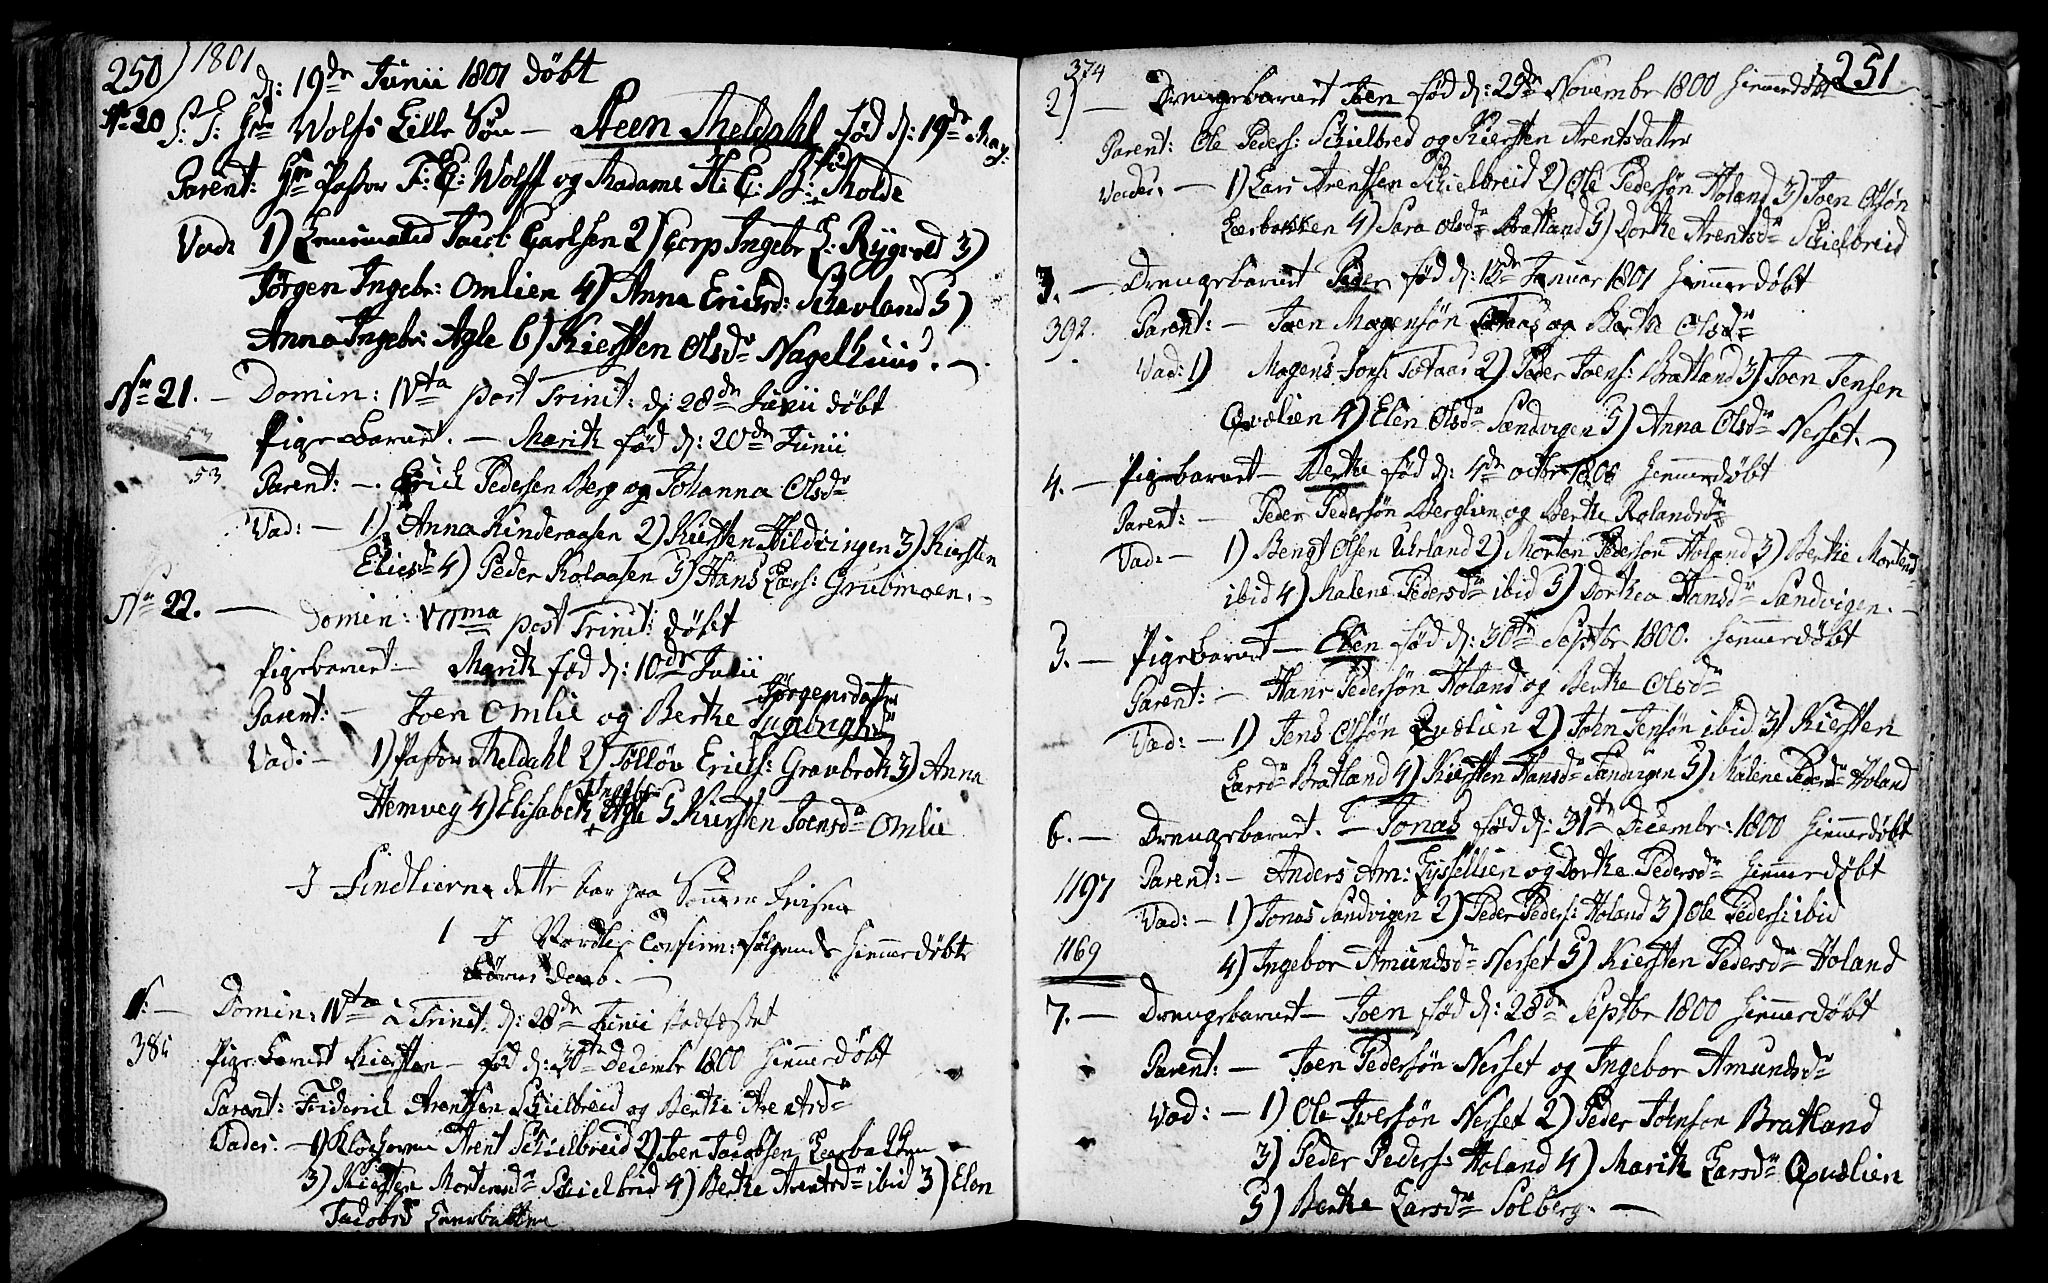 250) 1801
d: 19de Junii 1801 döbt
No 20 S: T: Hr Wolfs Lille Sön — Steen Meldahl föd d: 19de May:
Parent: Hr Pastor F: C: Wolff og Madame H: C: B: Molde
Vad: 1) Carlsen 2) Corp Ingebr L: Rygvold 3)
Jörgen Ingebr: Omlien 4) Anna Ericksd: Schavland 5)
Anna Ingebr: Agle 6) Kiersten Olsdr Nagelhuus. —
No 21. — Domin: IVta post Trinit: d: 28de Junii döbt
Pigebarnet. — Marith föd d: 20de Junii
53
53 Parent: — Erich Pedersen Berg og Johanna Olsdr
Vad: — 1) Anna Kinderaasen 2) Kiersten Hildringen 3) Kiersten
Eliesdr 4) Peder Kolaasen 5) Hans Lars: Grubmoen. —
No 22. — Domin: VIIma post Trinit: döbt
Pigebarnet — Marith föd d: 10de Julii
Parent: — Joen Omlie og Berthe Jörgensdatter
Vad: — 1) Pastor Meldahl 2) Tollöv Erichs: Gravbrok 3) Anna
Hemveg 4) Elisabeth Ingebr Agle 5 Kiersten Joensd: Omlie
I Findlierne dette Aar paa Sommer Reisen
1 I Nordlie Confirm: følgende Hiemmedöbte
Börns Daab. —
1: — Domin: IVta à Trinit: d: 28de Junii stadfæstet
385 Pigebarnet Kiersten — föd d: 30te Decembr 1800 hiemmedöbt
Parent: Friderich Arentsen Schielbreid og Berthe Arentsdr
Vader: — 1) Klockeren Arent Schielbreid 2) Joen Jacobsen Leerbakken
3) Kiersten Mortensdr Schielbred 4) Berthe Arentsdr ibid 3) Elen
Jacobsd Leerbakken
374 251
2) — Drengebarnet Joen föd d: 29de Novembr 1800 hiemmedöbt
Parent: Ole Peders: Schielbred og Kiersten Arentsdatter
Vader: — 1) Lars Arentsen Schielbreid 2) Ole Pedersön Holand 3) Joen Olsön
Leerbakken 4) Sara Olsdr Bratland 5) Dorthe Arentsdr Schielbreid
3. — Drengebarnet Peder föd d: 15de Januar 1801 hiemmedöbt
392. Parent: — Joen Mogensön Totaas og Berth Olsdr
Vad: 1) Mogens Jons: Totaas 2) Peder Joens: Bratland 3) Joen Jensen
Qvelien 4) Elen Olsdr Sandvigen 5) Anna Olsdr Nerset. —
4. — Pigebarnet — Berthe föd d: 4de octbr 1800 hiemmedöbt
Parent: — Peder Pedersön Berglien og Berthe Rolandsdr
Vad: — 1) Bengt Olsen Urland 2) Morten Pederson Holand 3) Berthe Mortensd
ibid 4) Malene Pedersdr ibid 5) Dorthea Hansdr Sandvigen. —
5. — Pigebarnet — Elen föd d: 30te Septbr 1800. hiemmedöbt
Parent: — Hans Pedersön Holand og Berthe Olsdr
Vad: — 1) Jens Olsön Qvelien 2) John Jensön ibid 3) Kiersten
Larsdr Bratland 4) Kiersten Hansdr Sandvigen 5) Malene Pedersdr Holand
6. — Drengebarnet. — Jonas föd d: 31te Decembr: 1800 hiemmedöbt
1197 Parent: — Anders Am: Gysellien og Dorthe Pedersdr hiemmedöbt
Vad: — 1) Jonas Sandvigen 2) Peder Peders: Holand 3) Ole Peders: ibid
1169 4) Ingebor Amundsdr Nerset 5) Kiersten Pedersdr Holand
7. — Drengebarnet — Joen föd d: 28de Septbr 1800 hiemmedöbt
Parent: — Joen Pedersön Nerset og Ingebor Amundsdr
Vad: — 1) Ole Iversön Nerset 2) Peder Joenson Bratland
3) Peder Peders: Holand 4) Marith Larsdr Qvelien
5) Berthe Larsdr Solberg. —